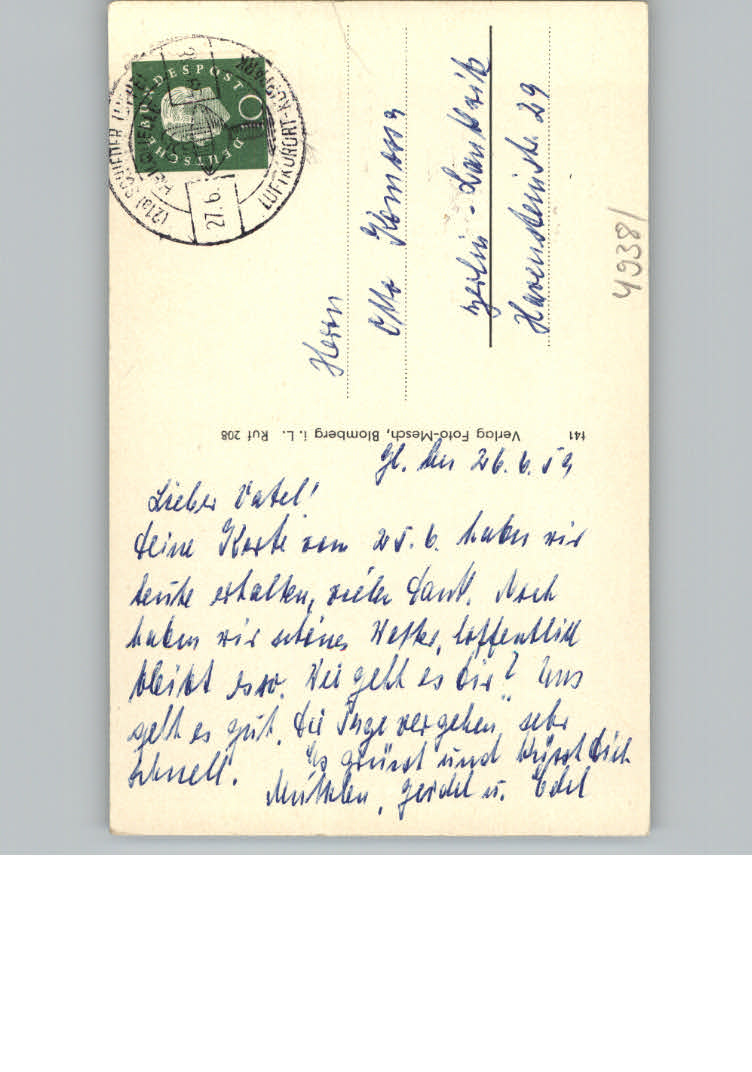 Gl. den 26.6.59
Lieber Vatel!
Deine Karte vom 25.6. haben wir
heute erhalten, vielen Dank. Noch
haben wir schönes Wetter, hoffentlich
bleibt es so. Wie geht es Dir? Uns
geht es gut. Die Tage vergehen sehr
schnell. Es grüsst und küsst Dich
u. Edel
Herrn
Otto
Berlin-Lankwitz
Havensteinstr. 29
4938/
Verlag Foto-Mesch, Blomberg i. L. Ruf 208
141
DEUTSCHE BUNDESPOST
(21a) SCHIEDER
LUFTKURORT-
27.6.